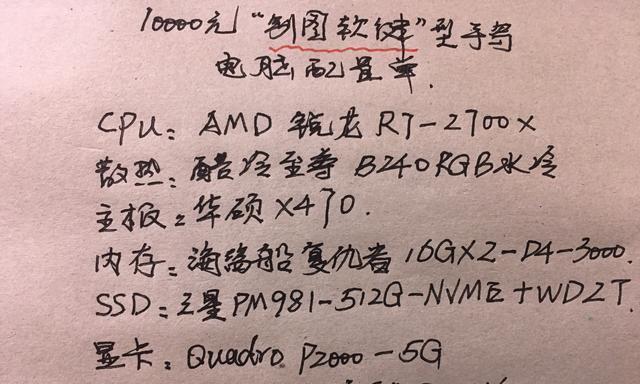 10000元“制图软件”型手写
电脑配置单.
CPU: AMD 锐龙 R7-2700x
散热: 酷冷至尊 B240RGB水冷
主板: 华硕 X470.
内存: 海盗船复仇者 16GX2-D4-3000.
SSD: 三星PM981-512G-NVME+WD2T.
显卡: Quadro P2000-5G